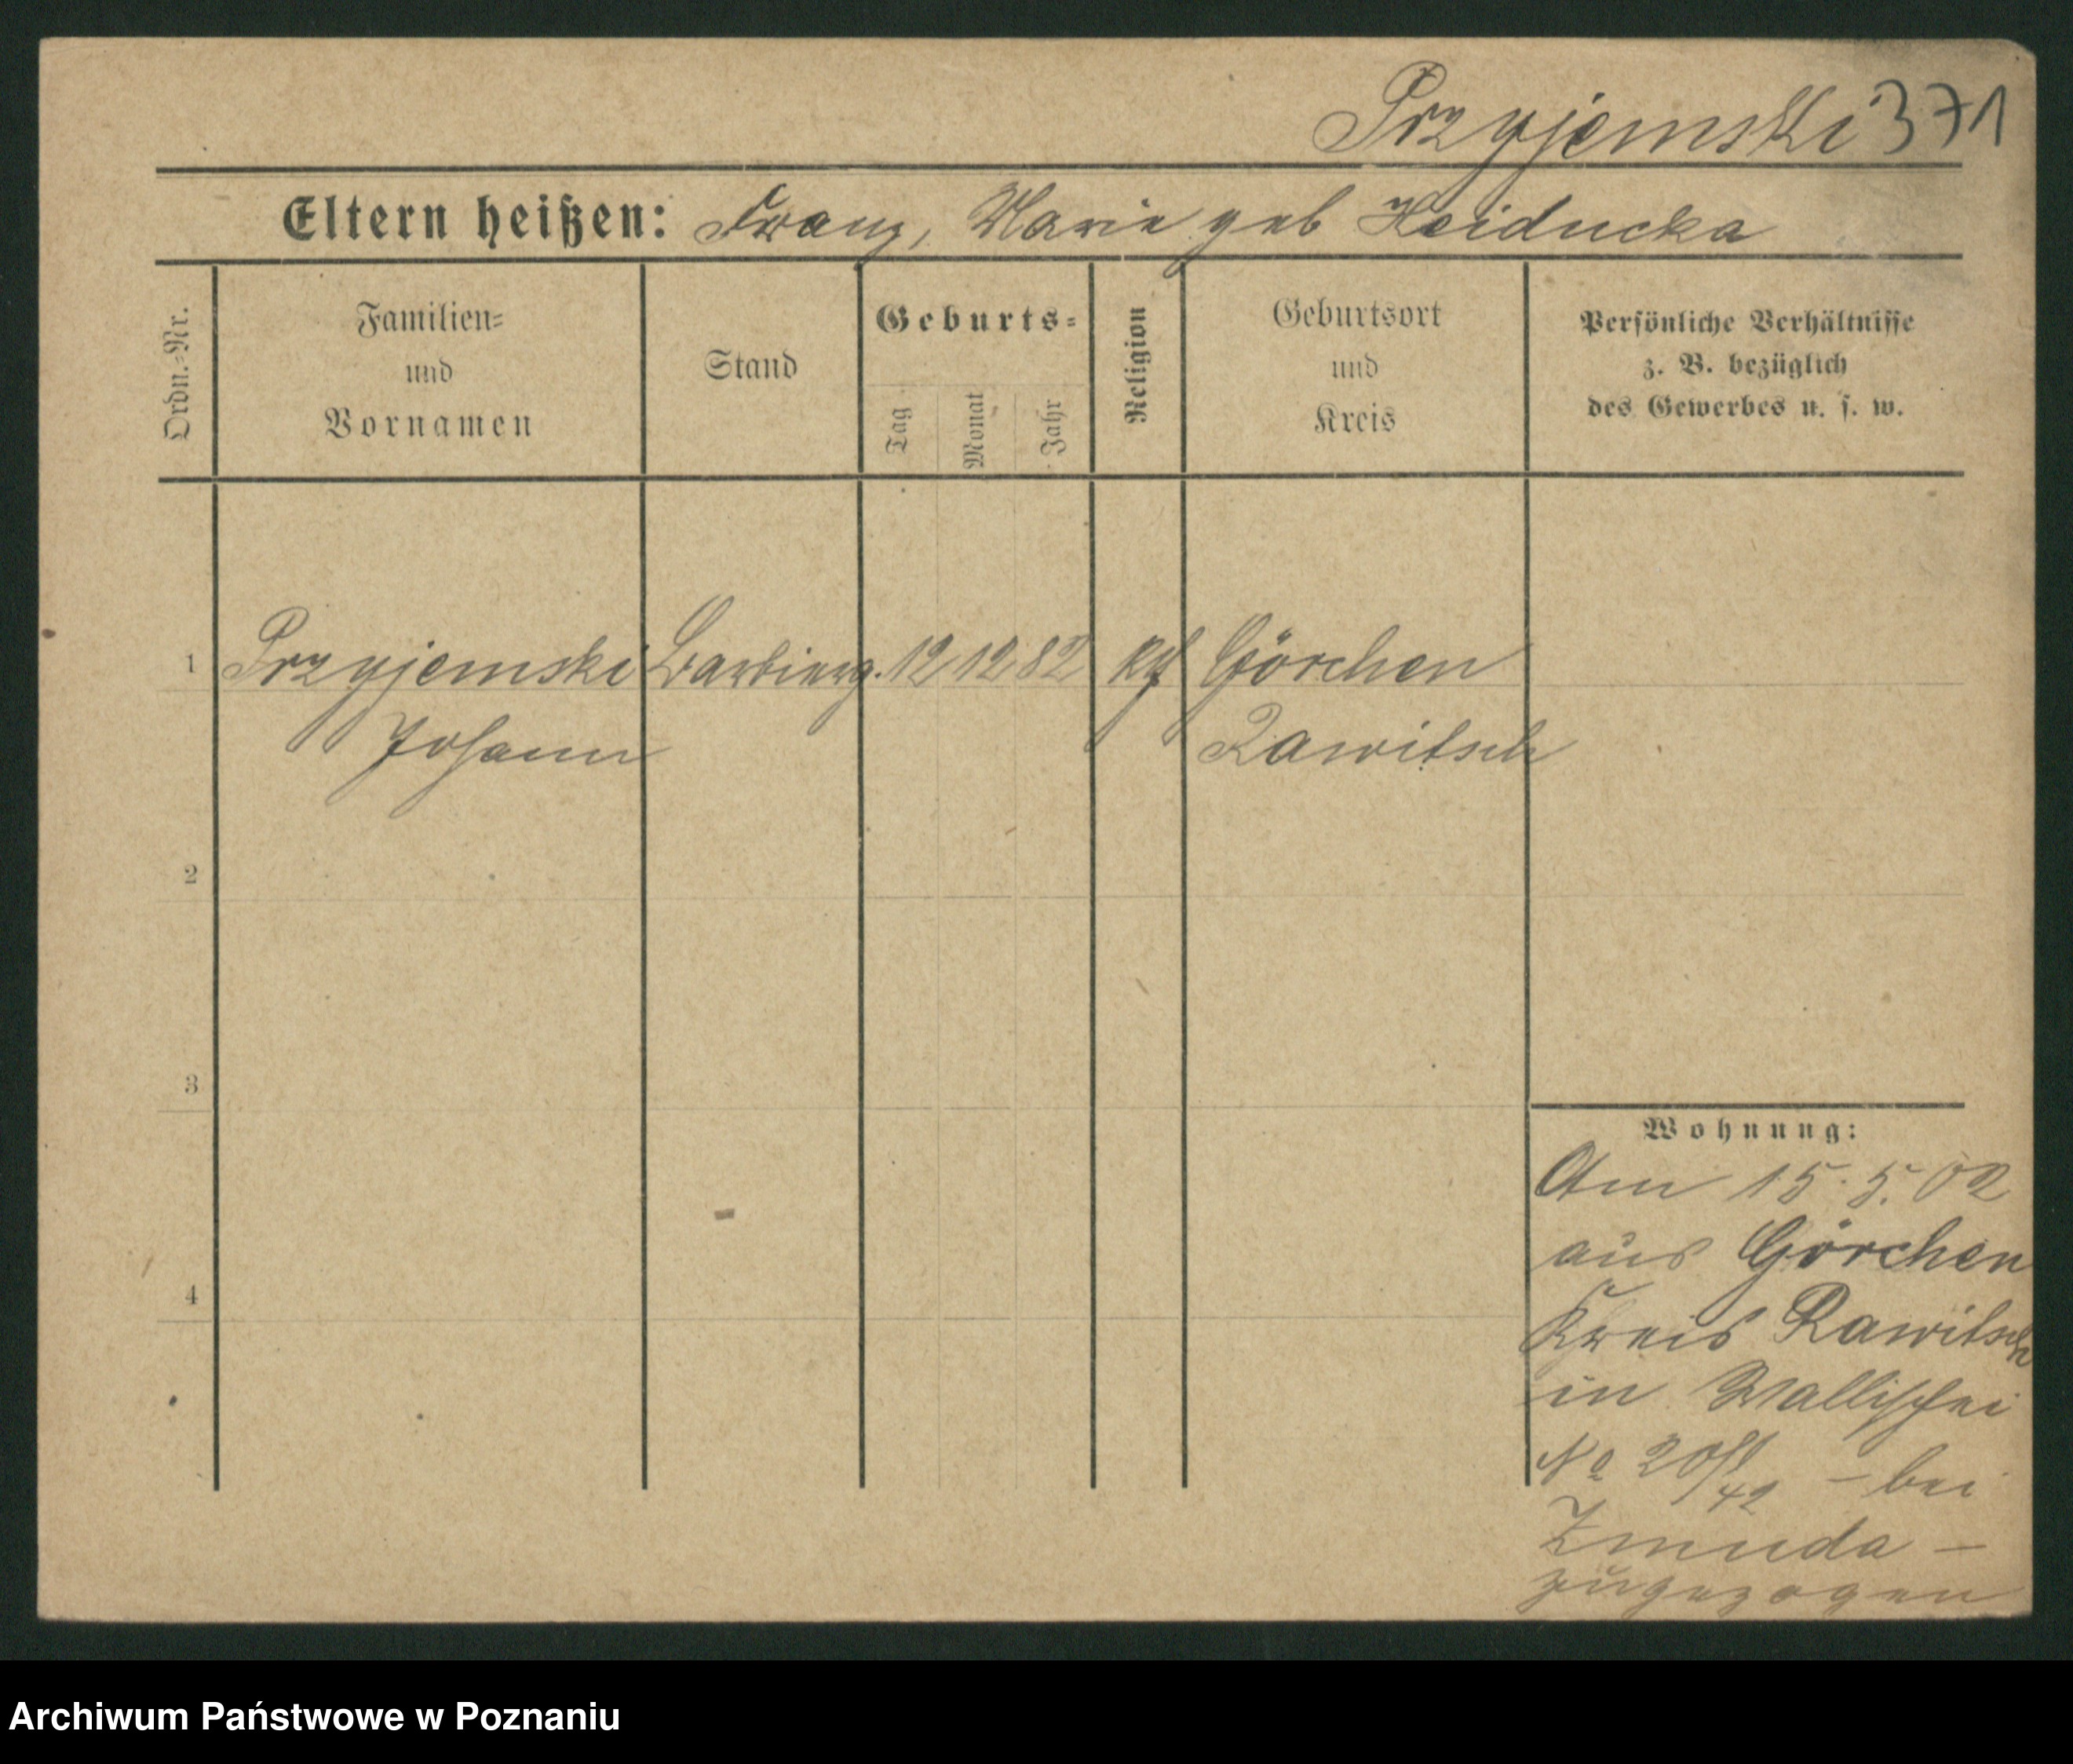 Przyjemski 371
Eltern heißen: Franz, Marie geb Heiducka
Ordn.-Nr.
Familien-
und
Vornamen
Stand
Geburts-
Tag
Monat
Jahr
Religion
Geburtsort
und
Kreis
Persönliche Verhältnisse
z. B. bezüglich
des Gewerbes u. s. w.
1 Przyjemski Barbierg. 12 12 82 Kth Görchen
Johann Rawitsch
2
3
4
Wohnung:
Am 15.5.02
aus Görchen
Kreis Rawitsch
in Wallischei
No bei
Zmuda –
zugezogen
Archiwum Państwowe w Poznaniu